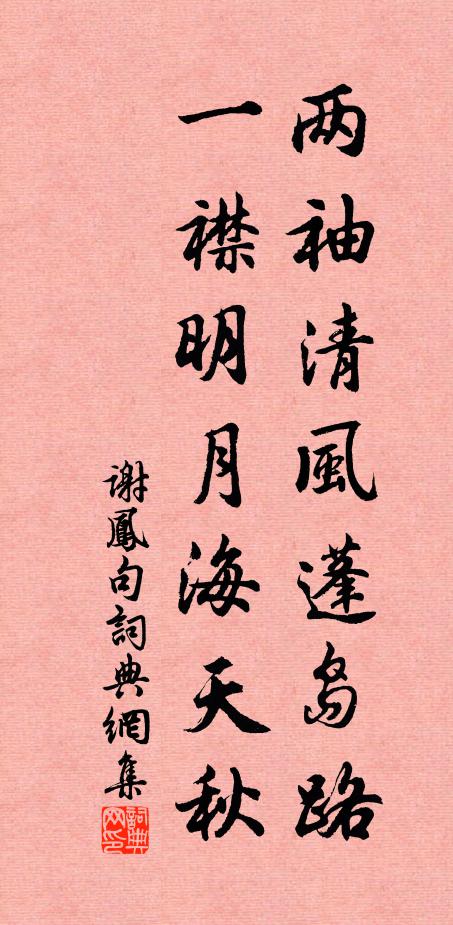 两袖清風蓬岛路
一襟明月海天秋
謝鳳句詞典網集
詞典网印